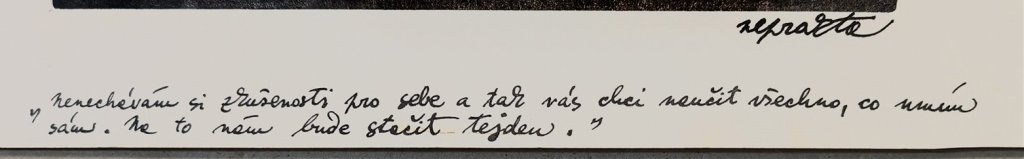 neprakta
„Nenechávám si zkušenosti pro sebe a tak vás chci naučit všechno, co umím
sám. Na to nám bude stačit tejden.”